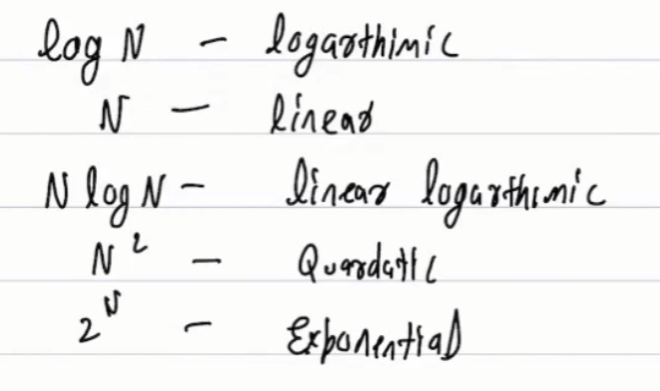 log N - logarthimic
N - linear
N log N - linear logarthimic
N² - Quardatic
2ᴺ - Exponential